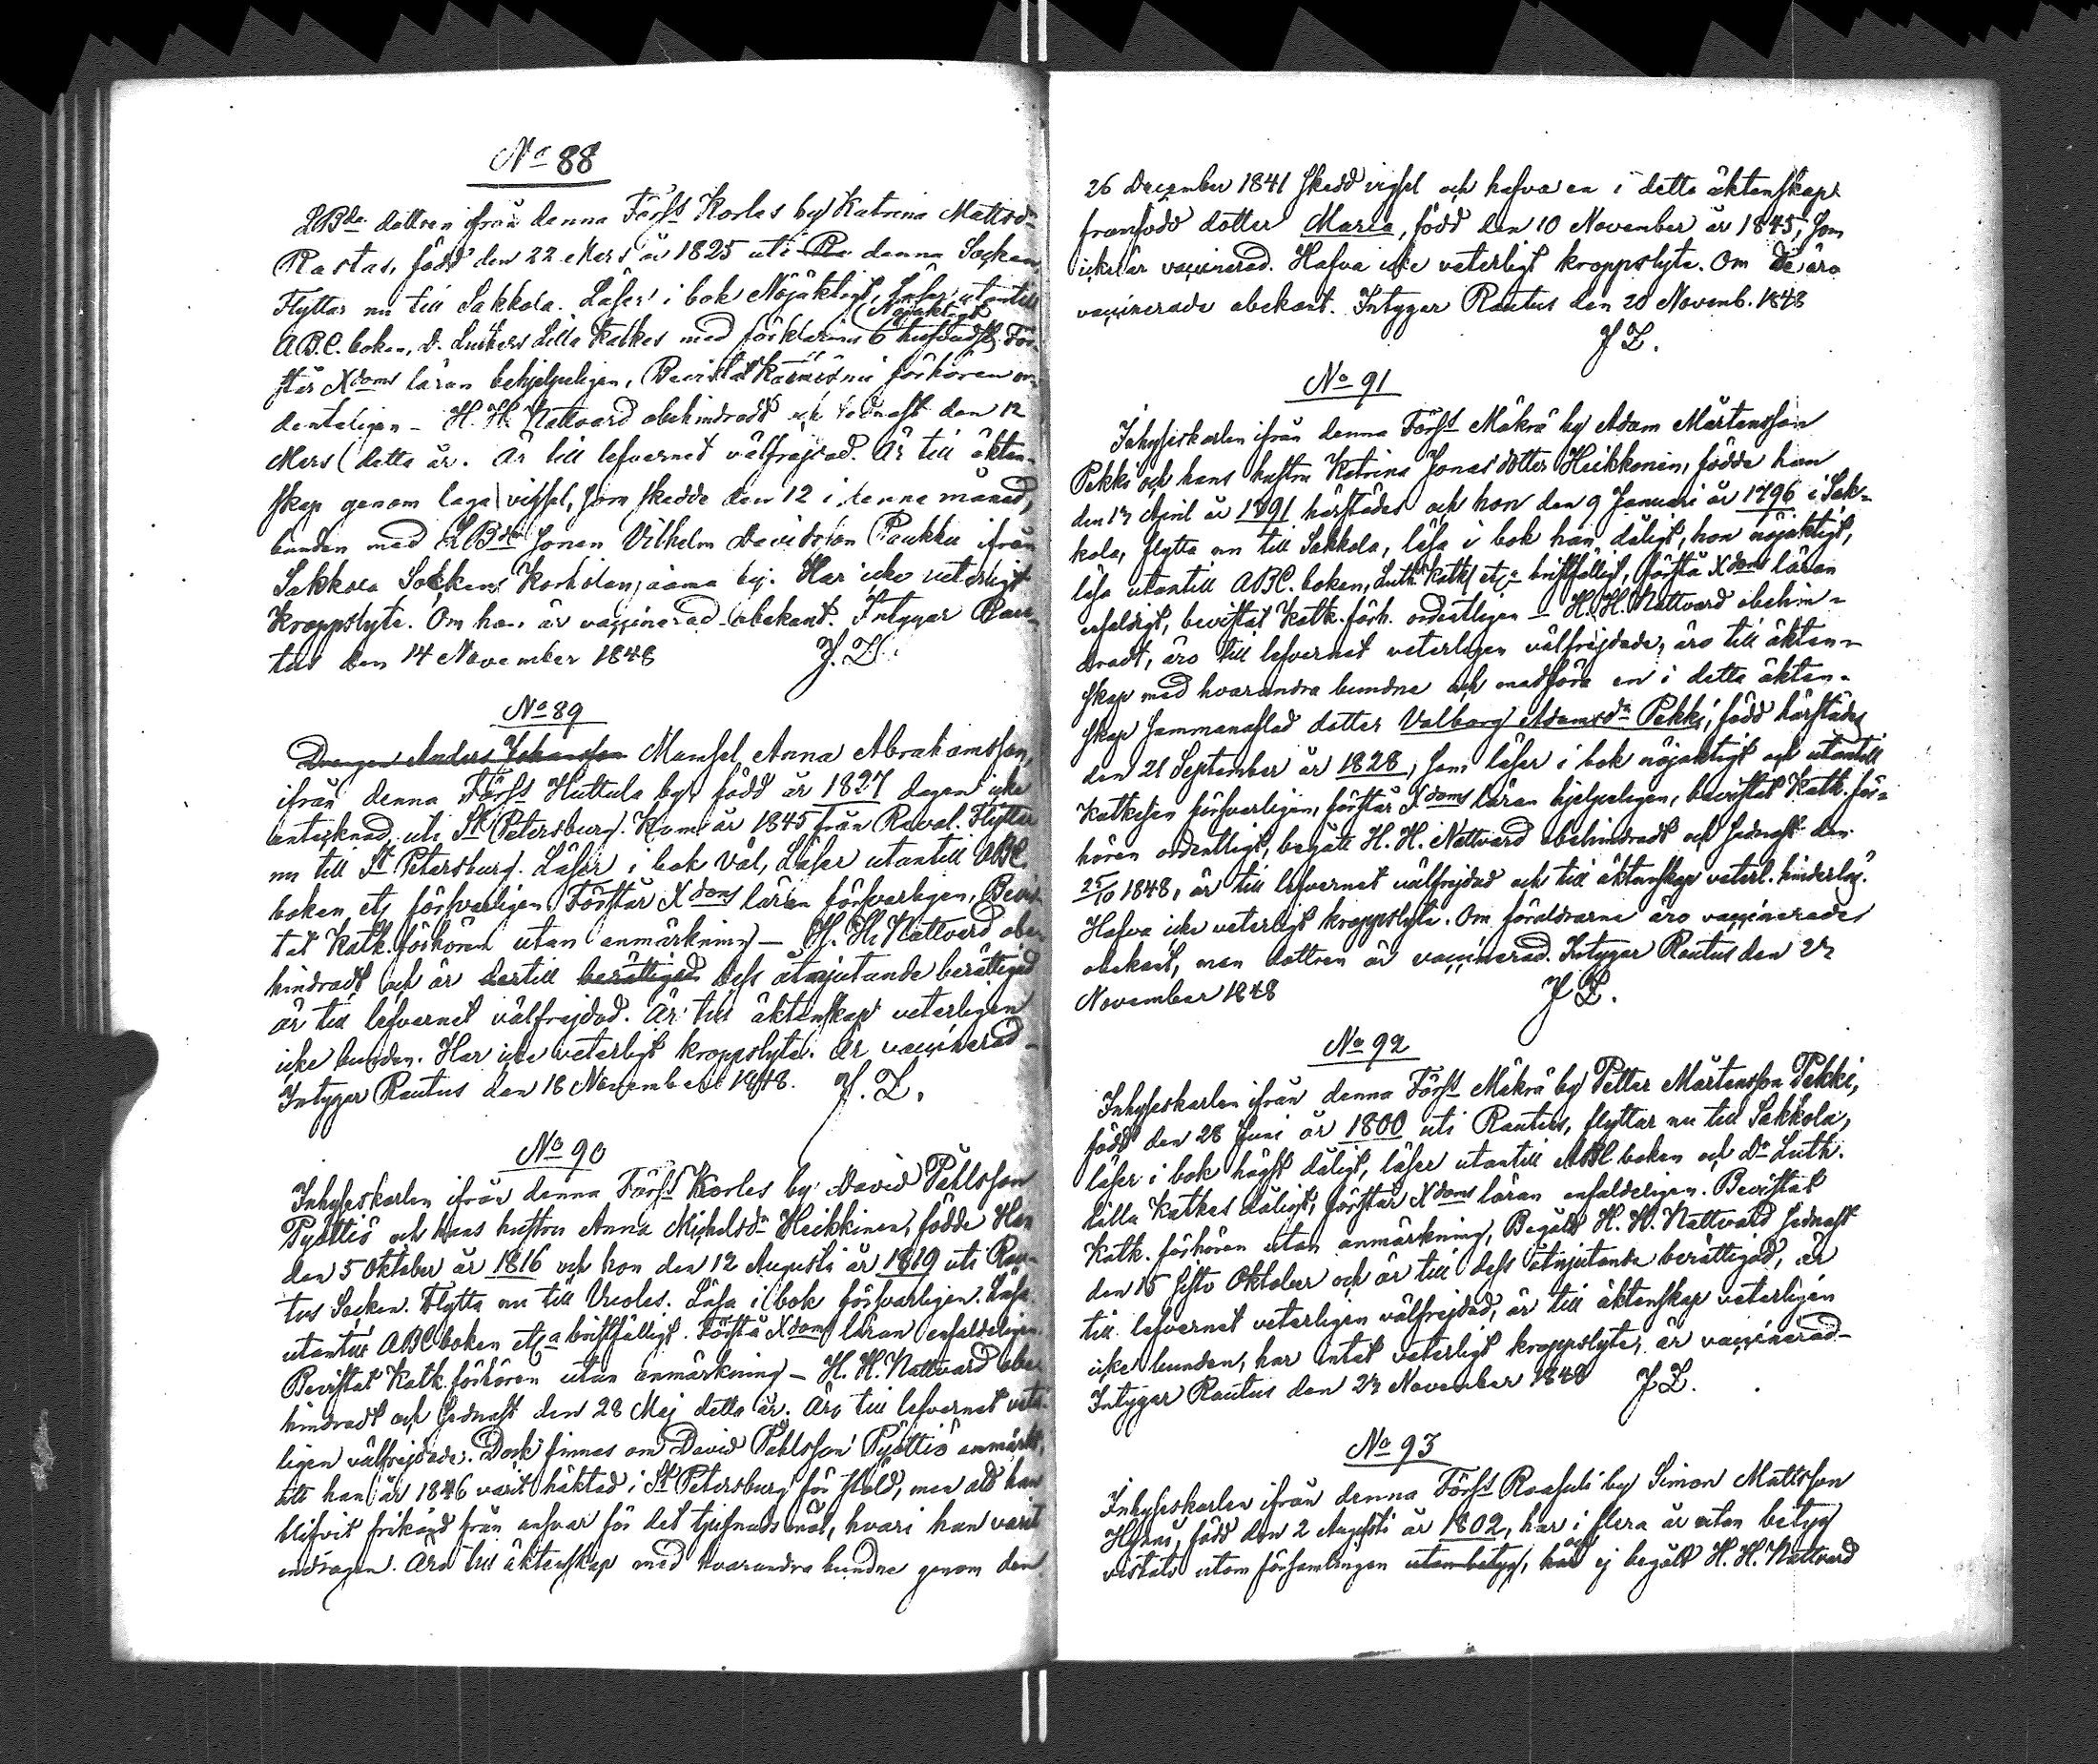 No 88
LBde dottren ifrån denna Förs:s Korles by Katrina Mattsdr
Rastas, född den 22 Mars år 1825 uti Ra denna Socken,
Flyttar nu till Sakkola. Läser i bok Nöjaktigt, Läser utantill
Nöjaktigt
A.B.C. boken, D. Luthers Lilla Katkes med förklaring & hustafl. För-
står Xdoms läran behjelpeligen, Bevistat förhören or-
denteligen – H. H. Nattvard obehindradt och sednast den 12
Mars detta år. Är till lefvernet välfrejdad. Är till äkten-
skap genom laga vigsel, som skedde den 12 i denna månad,
bunden med LBdson Jonan Vilhelm Davidsson Paukku ifrån
Sakkola Sockens by. Har icke veterligt
Kroppslyte. Om hon är vaccinerad obekant. Intygar Rau-
tus den 14 November 1848 J. L.
No 89
Drengen Anders Johansson Mamsel Anna Abrahamsson,
ifrån denna Förs:s Huttula by, född år 1827 dagen icke
antecknad uti St Petersburg. Kom år 1845 från Raval. Flyttar
nu till St Petersburg. Läser i bok Väl, Läser utantill ABC
boken etc försvarligen Förstår Xdoms läran försvarligen, Bevis-
tat Katk. förhören utan anmärkning – H. H. Nattvard obe-
hindradt och är dertill berättigad dess åtnjutande berättigad
är till lefvernet välfrejdad. Är till äktenskap veterligen
icke bunden. Har icke veterligt kroppslyte. Är vaccinerad –
Intygar Rautus den 18 November 1848. J. L.
No 90
Inhyseskarlen ifrån denna Förs:s Korles by David Påhlsson
Pyöttiö och hans hustru Anna Michelsdr Heikkinen, födde Han
den 5 Oktober år 1816 och hon den 12 Augusti år 1819 uti Rau-
tus Socken. Flytta nu till Vuoles. Läsa i bok försvarligen. Läsa
utantill ABC boken etca bristfälligt. Förstå Xdoms läran enfaldeligen.
Bevistat Katk. förhören utan anmärkning – H. H. Nattvard obe-
hindradt och sednast den 28 Maj detta år. Äro till lefvernet vete-
ligen välfrejdade. Dock finnes om David Påhlsson Pyöttiö anmärkt,
att han år 1846 varit häktad i St Petersburg för stöld, men att han
blifvit frikänd från ansvar för det tjufnads mål, hvari han varit
indragen. Äro till äktenskap med hvarandra bundne genom den
26 December 1841 skedd vigsel och hafva en i detta äktenskap
framfödd dotter Maria, född den 10 November år 1845, som
icke är vaccinerad. Hafva icke veterligt kroppslyte. Om de äro
vaccinerade obekant. Intygar Rautus den 20 Novemb. 1848
J L.
No 91
Inhyseskarlen ifrån denna Förs:s Mäkrä by Adam Mårtensson
Pekki och hans hustru Katrina Jonas dotter Heikkonin, födde han
den 13 April år 1791 härstädes och hon den 9 Januari år 1796 i Sak-
kola, flytta nu till Sakkola, läsa i bok han dåligt, hon nöjaktigt,
läsa utantill ABC. boken, Luth. Katks etca bristfälligt, förstå Xdoms läran
enfaldigt, bevistat Katk. förh. ordentligen – H. H. Nattvard obehin-
dradt, äro till lefvernet veterligen välfrejdade, äro till äkten-
skap med hvarandra bundna och medföra en i detta äkten-
skap sammanaflad dotter Valborg Adamsdr Pekki, född härstädes
den 21 September år 1828, som läser i bok nöjaktigt och utantill
Katkesen försvarligen, förstår Xdoms läran hjelpeligen, bevistat Katk. för-
hören ordentligt, begått H. H. Nattvard obehindradt och sednast den
25/10 1848, är till lefvernet välfrejdad och till äktenskap veterl. hinderlös.
Hafva icke veterligt kroppslyte. Om föräldrarne äro vaccinerade
obekant, men dottren är vaccinerad. Intygar Rautus den 23
November 1848 J L.
No 92
Inhyseskarlen ifrån denna Förs:s Mäkrä by Petter Mårtensson Pekki,
född den 28 Juni år 1800 uti Rautus, flyttar nu till Sakkola,
läser i bok högst dåligt, läser utantill ABC boken och Dr Luth.
Lilla Katkes dåligt, förstår Xdoms läran enfaldeligen. Bevistat
Katk. förhören utan anmärkning, Begått H. H. Nattvard sednast
den 15 siste Oktober och är till dess åtnjutande berättigad, är
till lefvernet veterligen välfrejdad, är till äktenskap veterligen
icke bunden, har intet veterligt kroppslyte, är vaccinerad –
Intygar Rautus den 23 November 1848 J L.
No 93
Inhyseskarlen ifrån denna Förs:s Raasuli by Simon Mattsson
född den 2 Augusti år 1802, har i flera år utan betyg
och
vistats utom församlingen utan betyg, har ej begått H. H. Nattvard